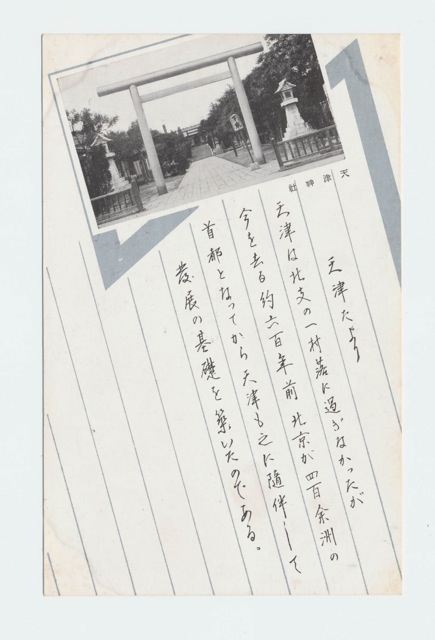 天津神社
天津だより
天津は北支の一村落に過ぎなかったが
今を去る約六百年前 北京が四百余洲の
首都となってから天津も之に隨伴して
發展の基礎を築いたのである。